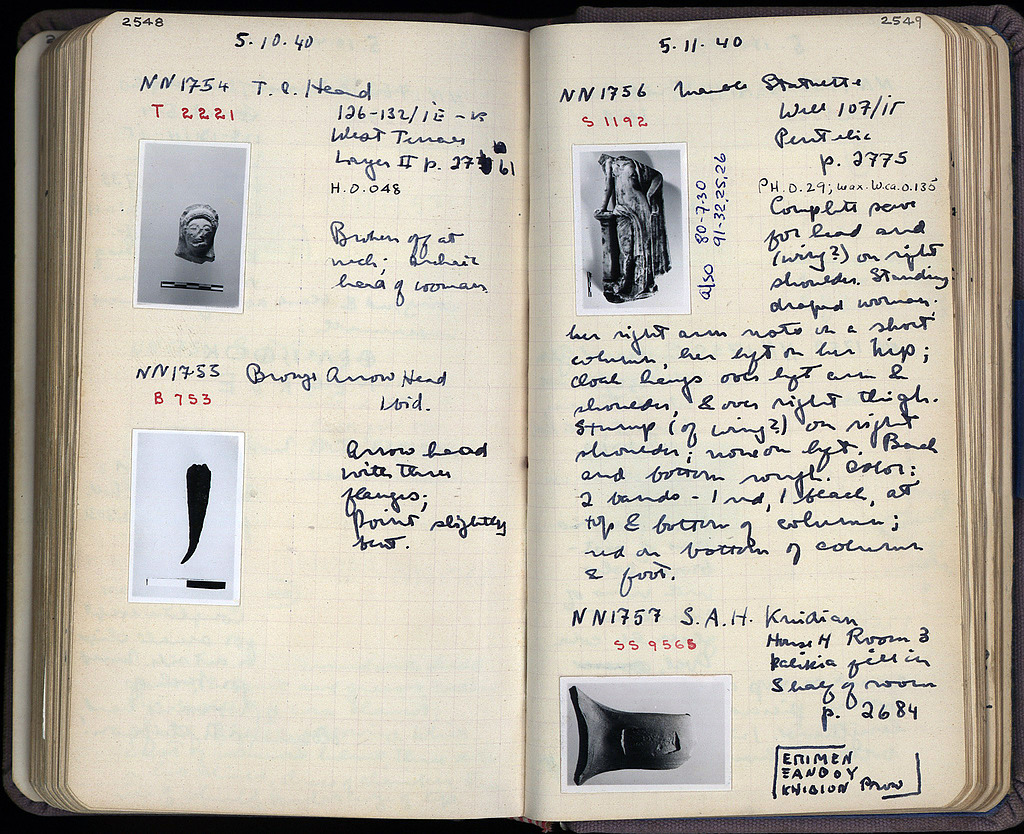 2548
5·10·40
NN1754 T.C. Head
T 2221
126-132/ΙΕ -
West Terrace
Layer II p. 27 61
H.0.048
Broken off at
neck; archaic
head of woman.
NN1755 Bronze Arrow Head
B 753
Ibid.
Arrow head
with three
flanges;
Point slightly
bent.
2549
5·11·40
NN1756 Marble Statuette
S 1192
Well 107/ΙΓ
Pentelic
p. 2775
PH.0.29; max.W.ca.0.135
also 80-7-30
91-32,25,26
Complete save
for head and
(wing?) on right
shoulder. Standing
draped woman.
her right arm rests on a short
column, her left on her hip;
cloak hangs over left arm &
shoulder, & over right thigh.
Stump (of wing?) on right
shoulder; none on left. Back
and bottom rough. Color:
2 bands - 1 red, 1 black, at
top & bottom of column;
red on bottom of column
& foot.
NN1757 S.A.H. Knidian
SS 9565
House H Room 3
fill in
S half of room
p. 2684
ΕΠΙΜΕΝ
ΞΑΝΘΟΥ
ΚΝΙΔΙΟΝ Prow